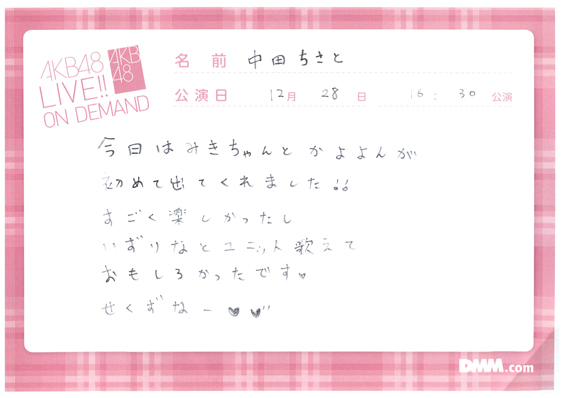 AKB48
LIVE!!
ON DEMAND
AKB
48
名前 中田ちさと
公演日 12月 28日 16:30公演
今日はみきちゃんとかよよんが
初めて出てくれました!!
すごく楽しかったし
いずりなとユニット歌えて
おもしろかったです♥
せくずなー♥♥"
DMM.com